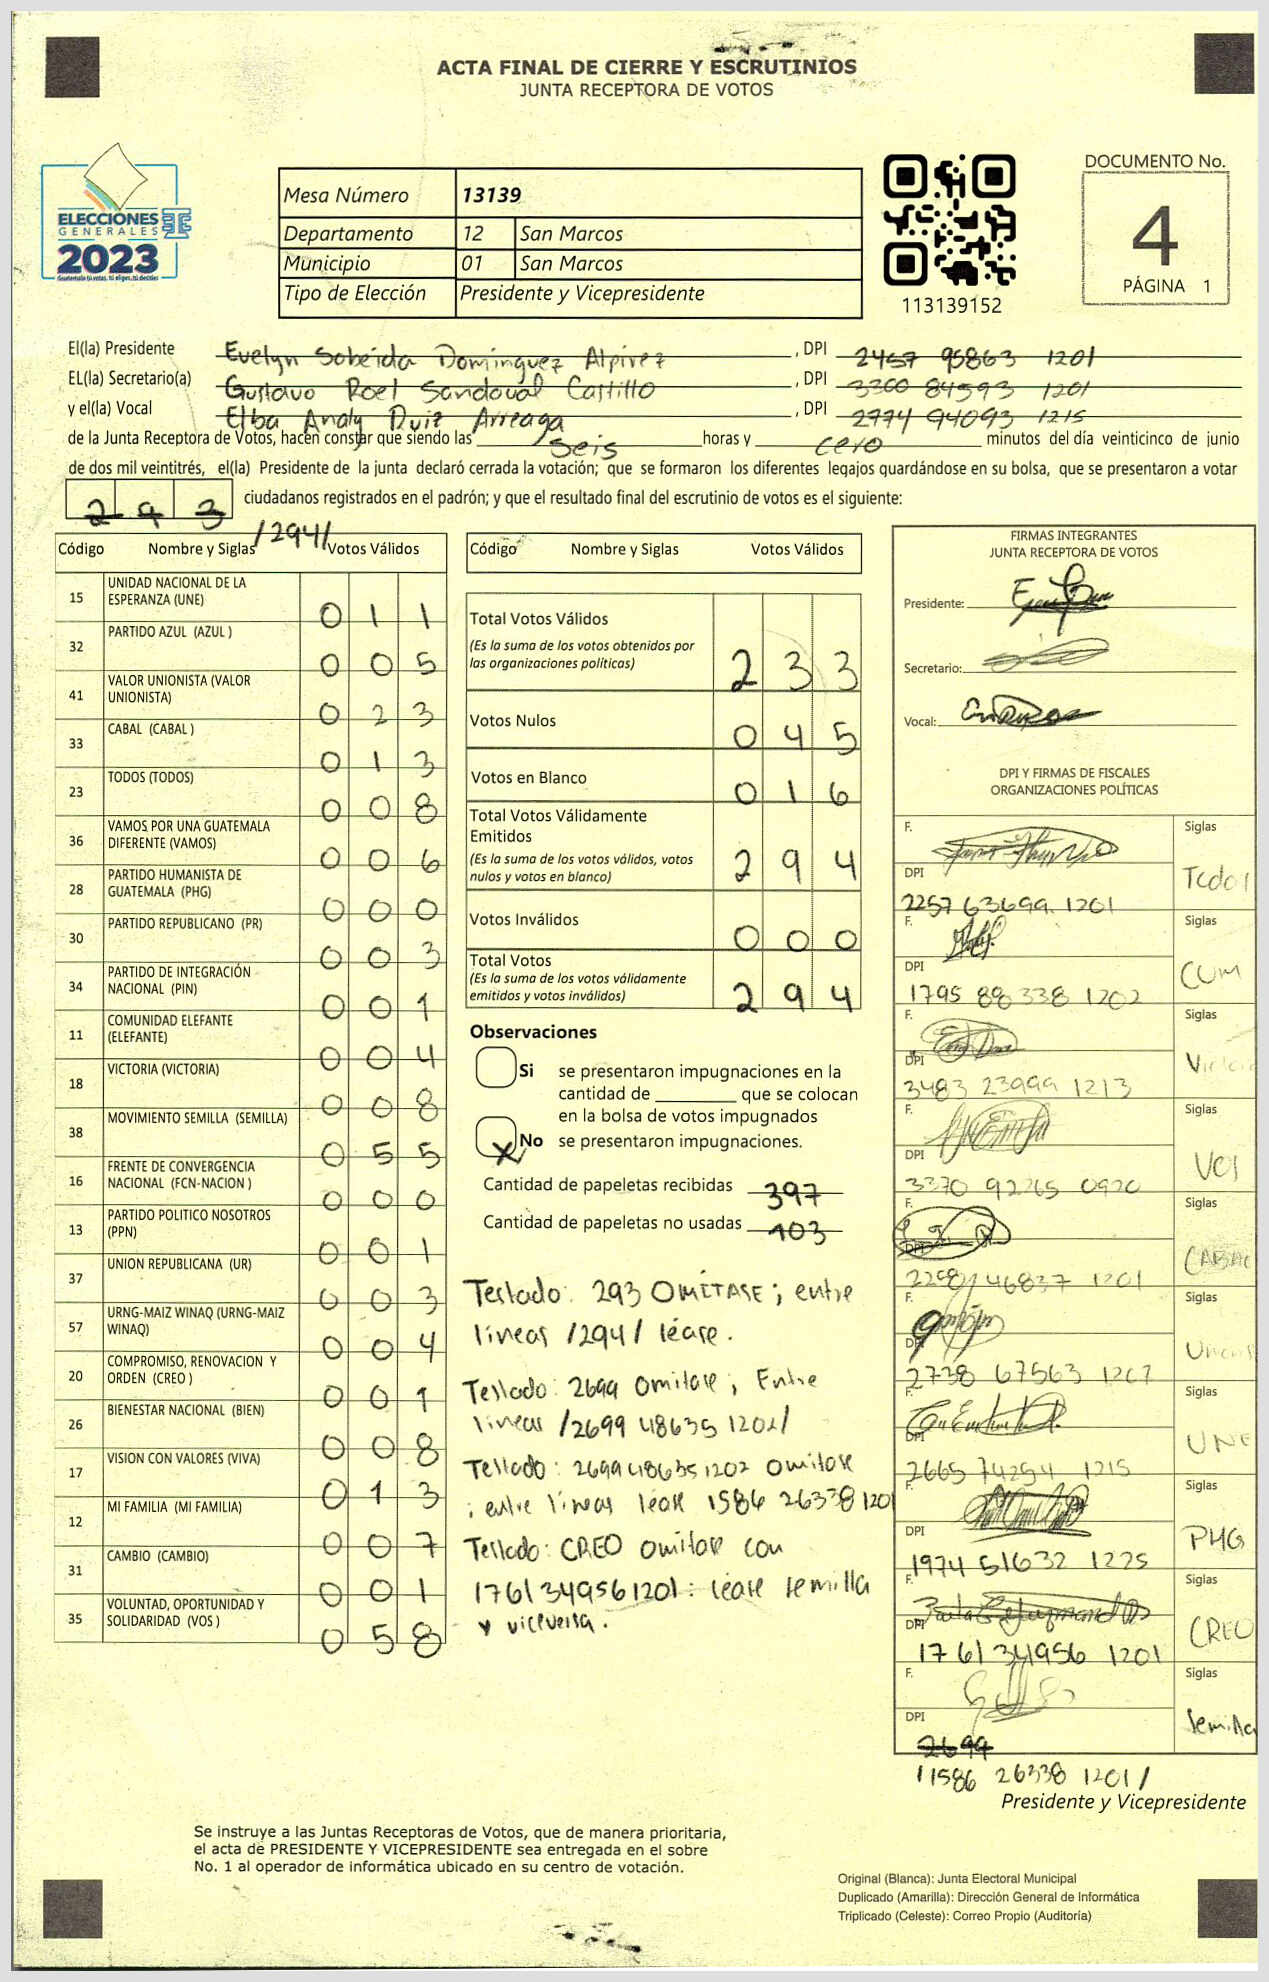 ACTA FINAL DE CIERRE Y ESCRUTINIOS
JUNTA RECEPTORA DE VOTOS
ELECCIONES
GENERALES
2023
Mesa Número 13139
Departamento 12 San Marcos
Municipio 01 San Marcos
Tipo de Elección Presidente y Vicepresidente
113139152
DOCUMENTO No.
4
PÁGINA 1
El(la) Presidente Evelyn Sobeida Dominguez Alpirez, DPI 2457 95863 1201
EL(la) Secretario(a) Gustavo Roel Sandoval Castillo, DPI 3300 84593 1201
y el(la) Vocal Elba Analy Ruiz Arreaga, DPI 2774 94093 1215
de la Junta Receptora de Votos, hacen constar que siendo las seis horas y cero minutos del día veinticinco de junio
de dos mil veintitrés, el(la) Presidente de la junta declaró cerrada la votación; que se formaron los diferentes legajos quardándose en su bolsa, que se presentaron a votar
293 ciudadanos registrados en el padrón; y que el resultado final del escrutinio de votos es el siguiente:
/294/
Código Nombre y Siglas Votos Válidos
15 UNIDAD NACIONAL DE LA ESPERANZA (UNE) 0 1 1
32 PARTIDO AZUL (AZUL ) 0 0 5
41 VALOR UNIONISTA (VALOR UNIONISTA) 0 2 3
33 CABAL (CABAL ) 0 1 3
23 TODOS (TODOS) 0 0 8
36 VAMOS POR UNA GUATEMALA DIFERENTE (VAMOS) 0 0 6
28 PARTIDO HUMANISTA DE GUATEMALA (PHG) 0 0 0
30 PARTIDO REPUBLICANO (PR) 0 0 3
34 PARTIDO DE INTEGRACIÓN NACIONAL (PIN) 0 0 1
11 COMUNIDAD ELEFANTE (ELEFANTE) 0 0 4
18 VICTORIA (VICTORIA) 0 0 8
38 MOVIMIENTO SEMILLA (SEMILLA) 0 5 5
16 FRENTE DE CONVERGENCIA NACIONAL (FCN-NACION ) 0 0 0
13 PARTIDO POLITICO NOSOTROS (PPN) 0 0 1
37 UNION REPUBLICANA (UR) 0 0 3
57 URNG-MAIZ WINAQ (URNG-MAIZ WINAQ) 0 0 4
20 COMPROMISO, RENOVACION Y ORDEN (CREO ) 0 0 1
26 BIENESTAR NACIONAL (BIEN) 0 0 8
17 VISION CON VALORES (VIVA) 0 1 3
12 MI FAMILIA (MI FAMILIA) 0 0 7
31 CAMBIO (CAMBIO) 0 0 1
35 VOLUNTAD, OPORTUNIDAD Y SOLIDARIDAD (VOS ) 0 5 8
Código Nombre y Siglas Votos Válidos
Total Votos Válidos 2 3 3
(Es la suma de los votos obtenidos por
las organizaciones políticas)
Votos Nulos 0 4 5
Votos en Blanco 0 1 6
Total Votos Válidamente
Emitidos 2 9 4
(Es la suma de los votos válidos, votos
nulos y votos en blanco)
Votos Inválidos 0 0 0
Total Votos 2 9 4
(Es la suma de los votos válidamente
emitidos y votos inválidos)
Observaciones
Si se presentaron impugnaciones en la
cantidad de ________ que se colocan
en la bolsa de votos impugnados
X No se presentaron impugnaciones.
Cantidad de papeletas recibidas 397
Cantidad de papeletas no usadas 103
Testado: 293 OMÍTASE; entre
lineas /294/ léase.
Testado: 2699 Omitase; Entre
lineas /2699 48635 1202/
Testado: 2699 48635 1202 Omitase
; entre lineas léase 1586 26338 1201
Testado: CREO omitase con
1761 34956 1201: léase semilla
y viceversa.
FIRMAS INTEGRANTES
JUNTA RECEPTORA DE VOTOS
Presidente:
Secretario:
Vocal:
DPI Y FIRMAS DE FISCALES
ORGANIZACIONES POLÍTICAS
F. Siglas
DPI Todos
2257 63699 1201
F. Siglas
DPI CUM
1795 88338 1202
F. Siglas
DPI Victoria
3483 23999 1213
F. Siglas
DPI VOS
3370 92265 0920
F. Siglas
DPI CABAL
2258 46837 1201
F. Siglas
DPI
2738 67563 1207
F. Siglas
DPI UNE
2665 74254 1215
F. Siglas
DPI PHG
1974 51632 1225
F. Siglas
DPI CREO
1761 34956 1201
F. Siglas
DPI Semilla
2699
/1586 26338 1201/
Presidente y Vicepresidente
Se instruye a las Juntas Receptoras de Votos, que de manera prioritaria,
el acta de PRESIDENTE Y VICEPRESIDENTE sea entregada en el sobre
No. 1 al operador de informática ubicado en su centro de votación.
Original (Blanca): Junta Electoral Municipal
Duplicado (Amarilla): Dirección General de Informática
Triplicado (Celeste): Correo Propio (Auditoría)